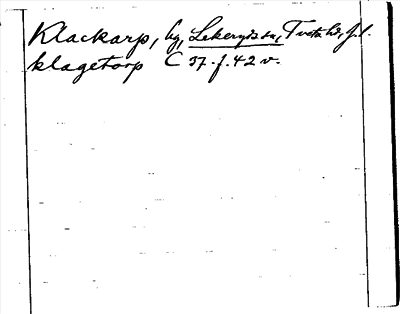 Klackarp, by, Lekeryds sn, Tveta hd, J.l.
klagetorp C 37. f. 42 v.